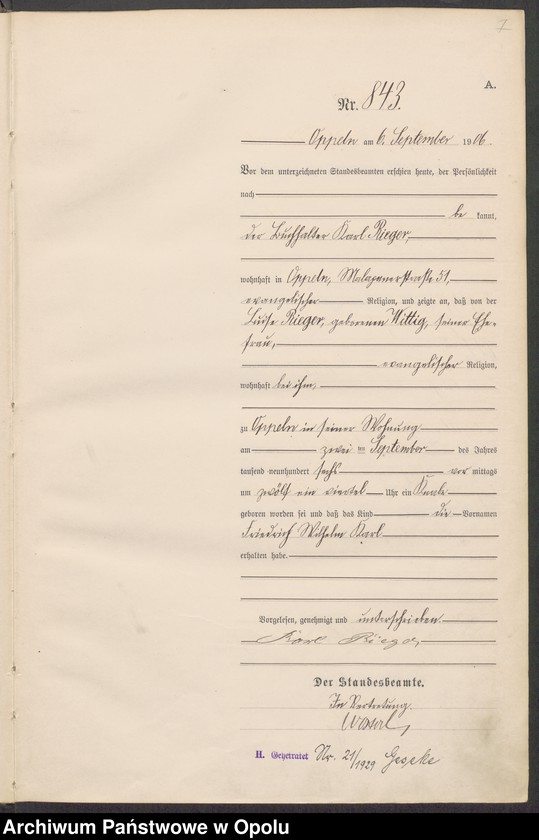 7
A.
Nr. 843.
Oppeln am 6. September 1906.
Vor dem unterzeichneten Standesbeamten erschien heute, der Persönlichkeit
nach
be kannt,
der Buchhalter Karl Rieger,
wohnhaft in Oppeln, Malapanerstraße 51,
evangelischer Religion, und zeigte an, daß von der
Luise Rieger, geborenen Wittig, seiner Ehe-
frau,
evangelischer Religion,
wohnhaft bei ihm,
zu Oppeln in seiner Wohnung
am zwei ten September des Jahres
tausend neunhundert sechs vor mittags
um zwölf ein viertel Uhr ein Knabe
geboren worden sei und daß das Kind die Vornamen
Friedrich Wilhelm Karl
erhalten habe.
Vorgelesen, genehmigt und unterschrieben.
Karl Rieger,
Der Standesbeamte.
In Vertretung.
H. Geheiratet Nr. 21/1929 Geseke
Archiwum Państwowe w Opolu